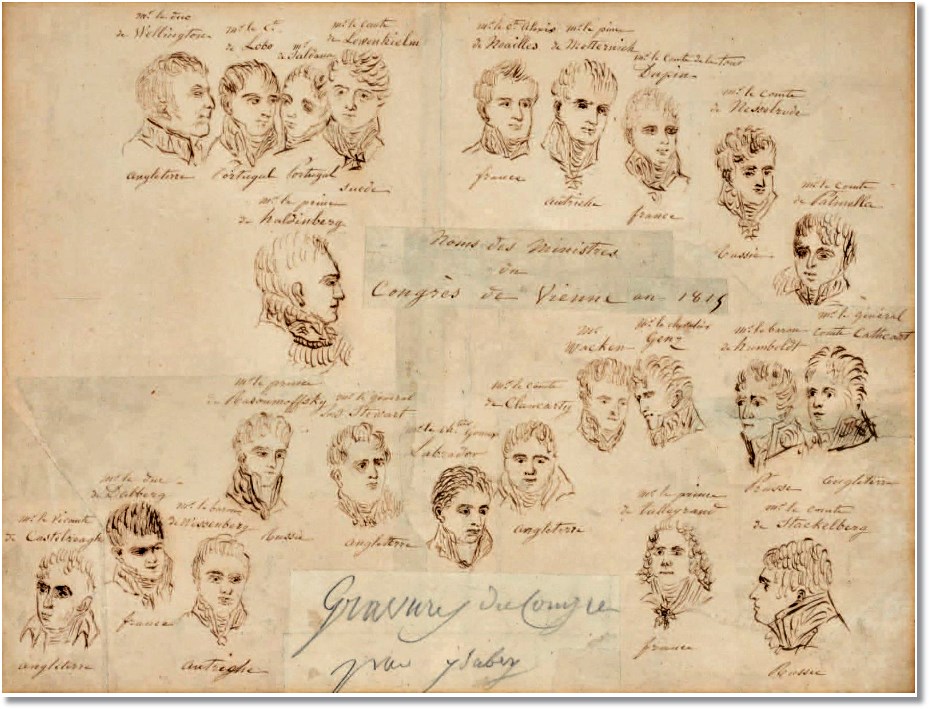 mr. le duc
de Wellington
angleterre
mr. le Ct.
de Lobo
Portugal
mr.
de Saldana
Portugal
mr. le comte
de Lowenhielm
suède
mr. le prince
de hardenberg
mr. le Ct. Alexis
de Noailles
france
mr. le prince
de Metternich
autriche
mr. le Comte de la tour
Dupin
france
mr. le comte
de Nesselrode
Russie
mr. le comte
de Palmella
Noms des Ministres
du
Congrès de Vienne en 1815
mr.
Wacken
mr. le chevalier
Genz
mr. le baron
de humboldt
Prusse
mr. le général
comte Cathcart
angleterre
mr. le prince
de Rasoumoffsky
Russie
mr. le général
Stewart
angleterre
Labrador
mr. le comte
de Clancarty
angleterre
mr. le Vicomte
de Castelreagh
angleterre
mr. le duc
de Dalberg
france
mr. le baron
de Wissenberg
autriche
mr. le prince
de talleyrand
france
mr. le comte
de Stackelberg
Russie
Gravure du Congre
par ysabey